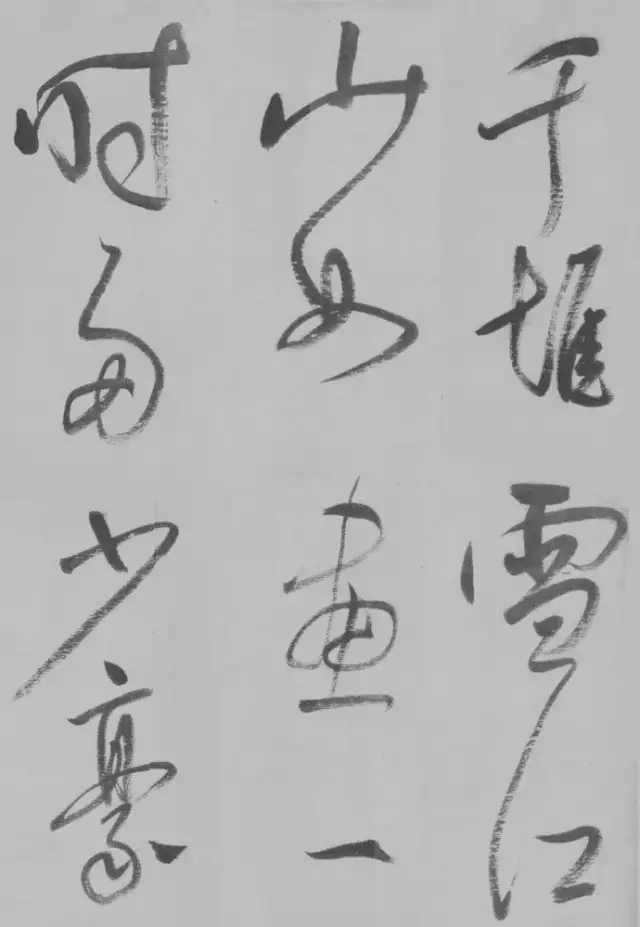 千堆雪江
山如画一
时多少豪